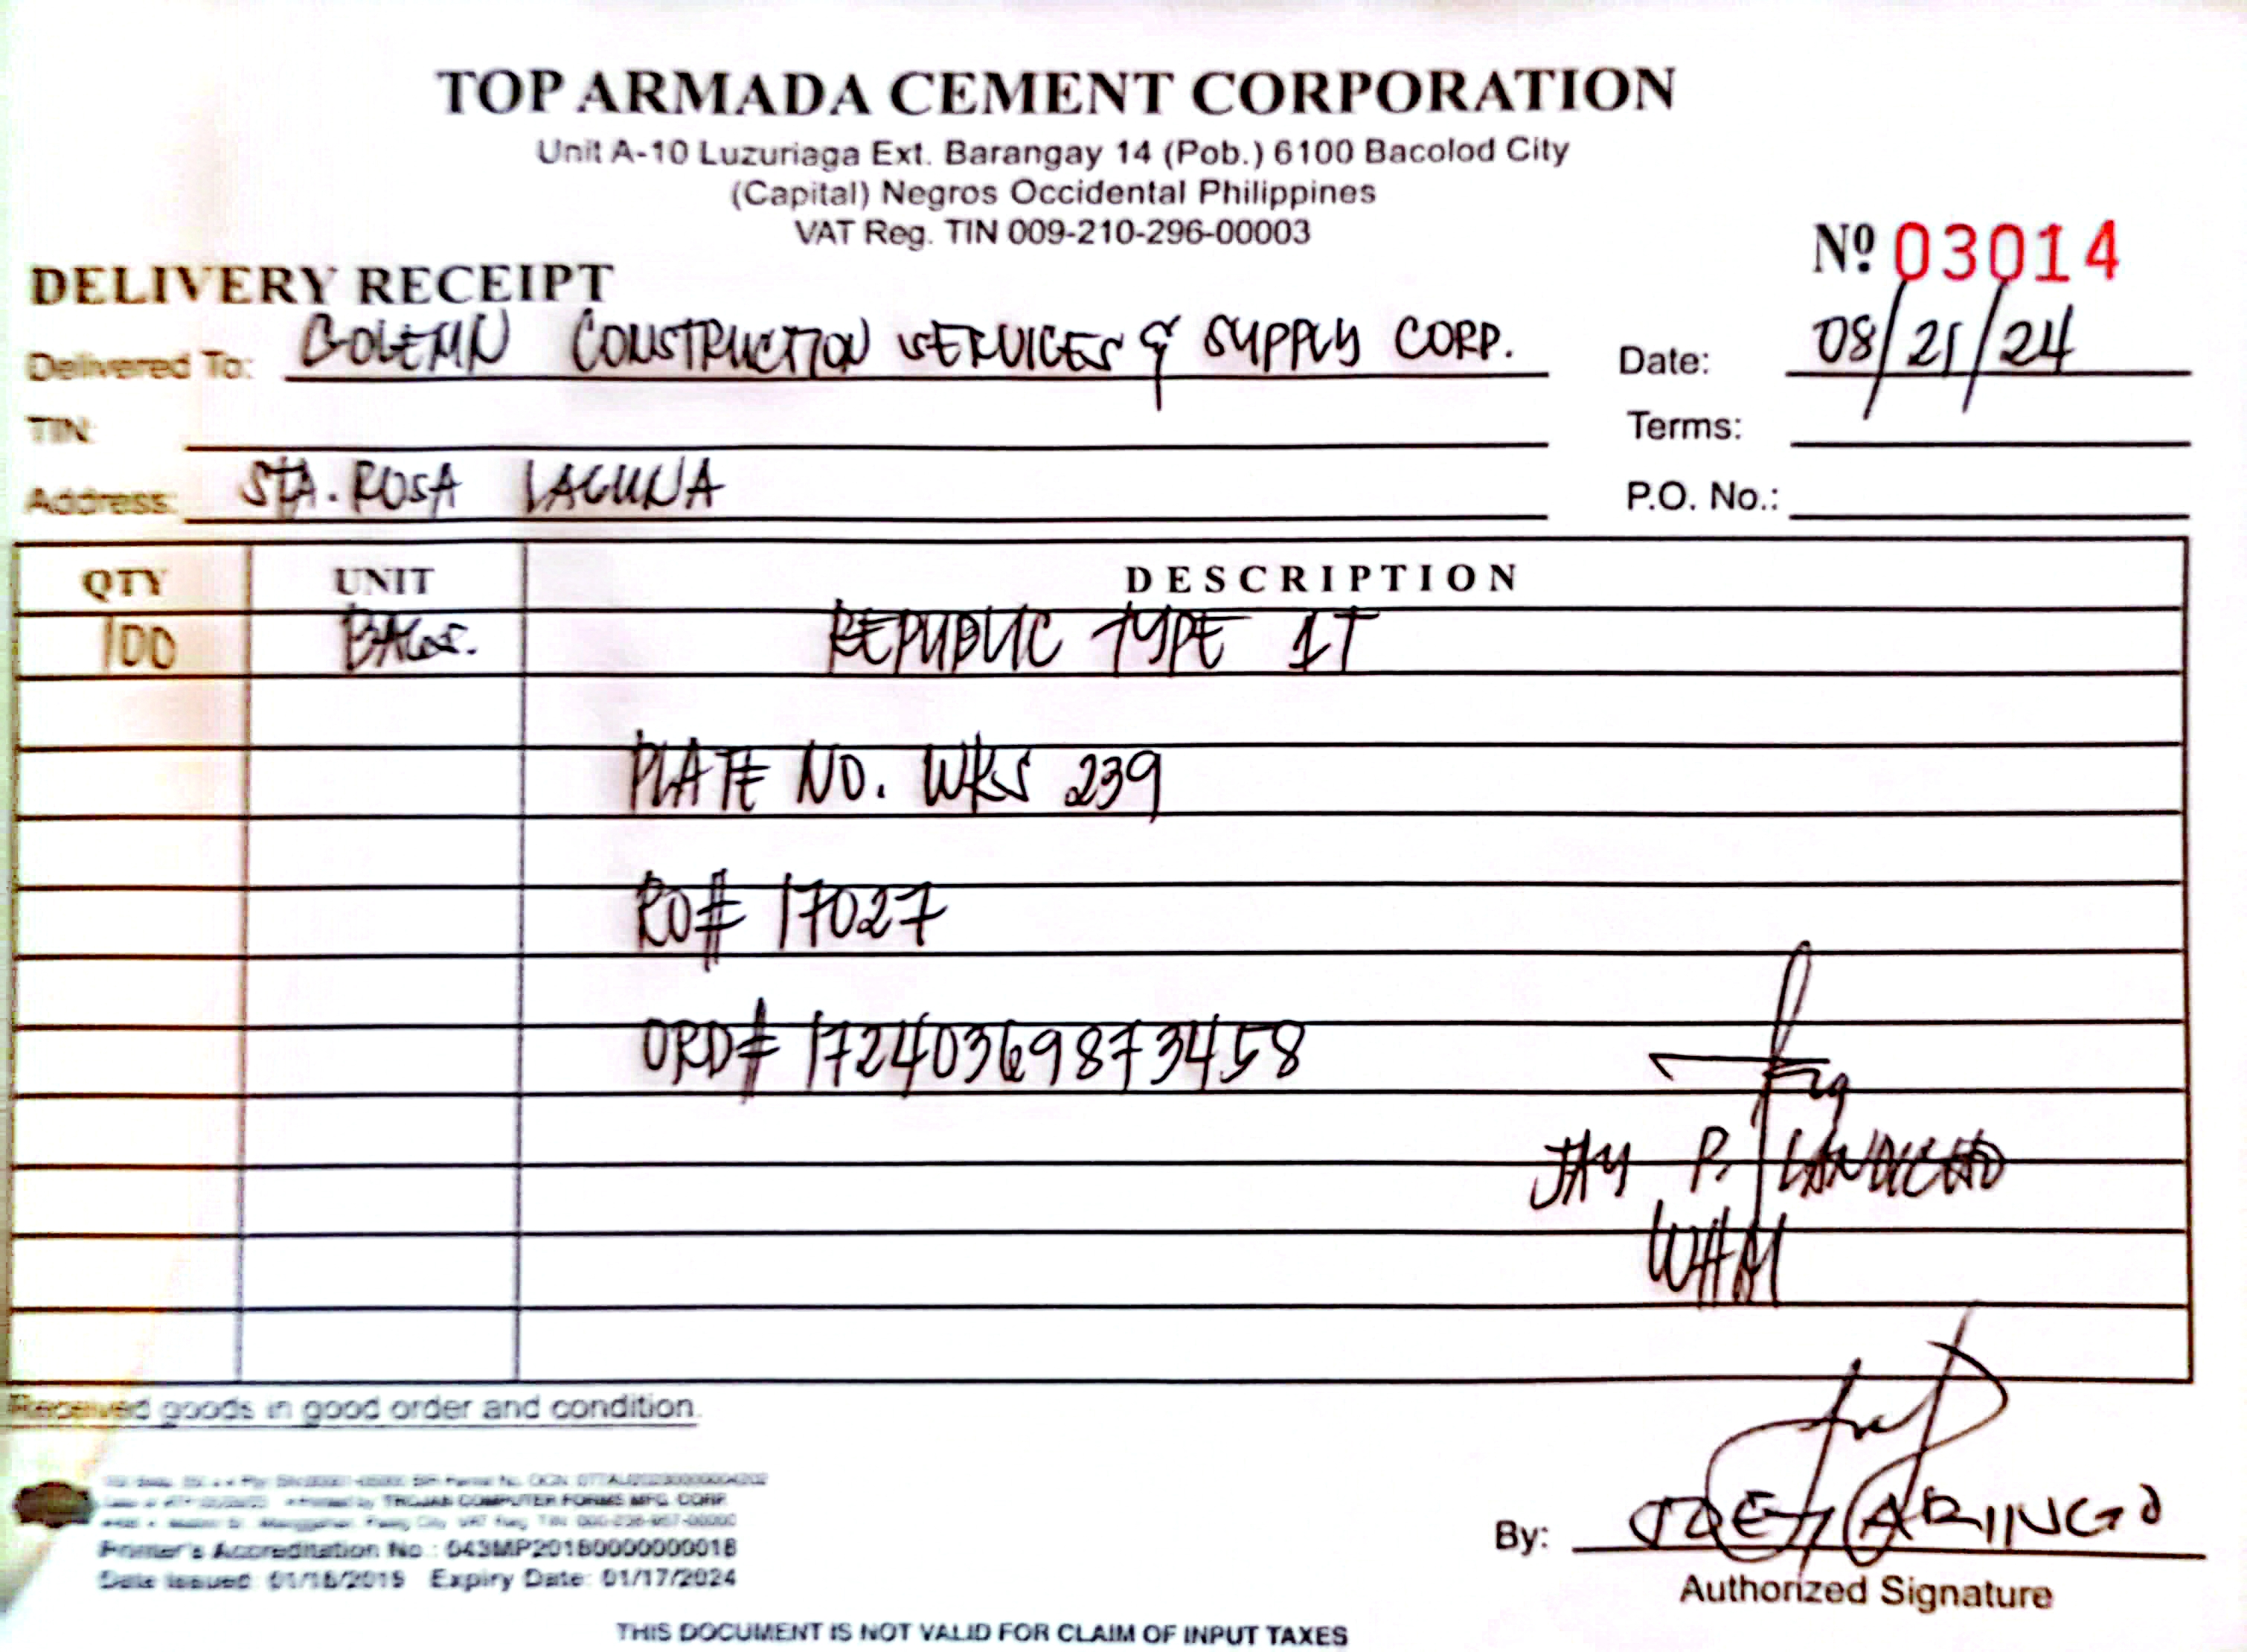 TOP ARMADA CEMENT CORPORATION
Unit A-10 Luzuriaga Ext. Barangay 14 (Pob.) 6100 Bacolod City
(Capital) Negros Occidental Philippines
VAT Reg. TIN 009-210-296-00003
Nº 03014
DELIVERY RECEIPT
Delivered To: GOLEMN CONSTRUCTION SERVICES & SUPPLY CORP. Date: 08/21/24
TIN: Terms:
Address: STA. ROSA LAGUNA P.O. No.:
QTY UNIT DESCRIPTION
100 BAGS. REPUBLIC TYPE 1T
PLATE NO. WKS 239
RO# 17027
ORD# 1724036987 3458
JAY P.
WHM
Received goods in good order and condition.
TROJAN COMPUTER FORMS MFG. CORP.
Printer's Accreditation No.: 043MP20180000000018
Date Issued: Expiry Date: 01/17/2024
By: JOEY ARIINGO
Authorized Signature
THIS DOCUMENT IS NOT VALID FOR CLAIM OF INPUT TAXES